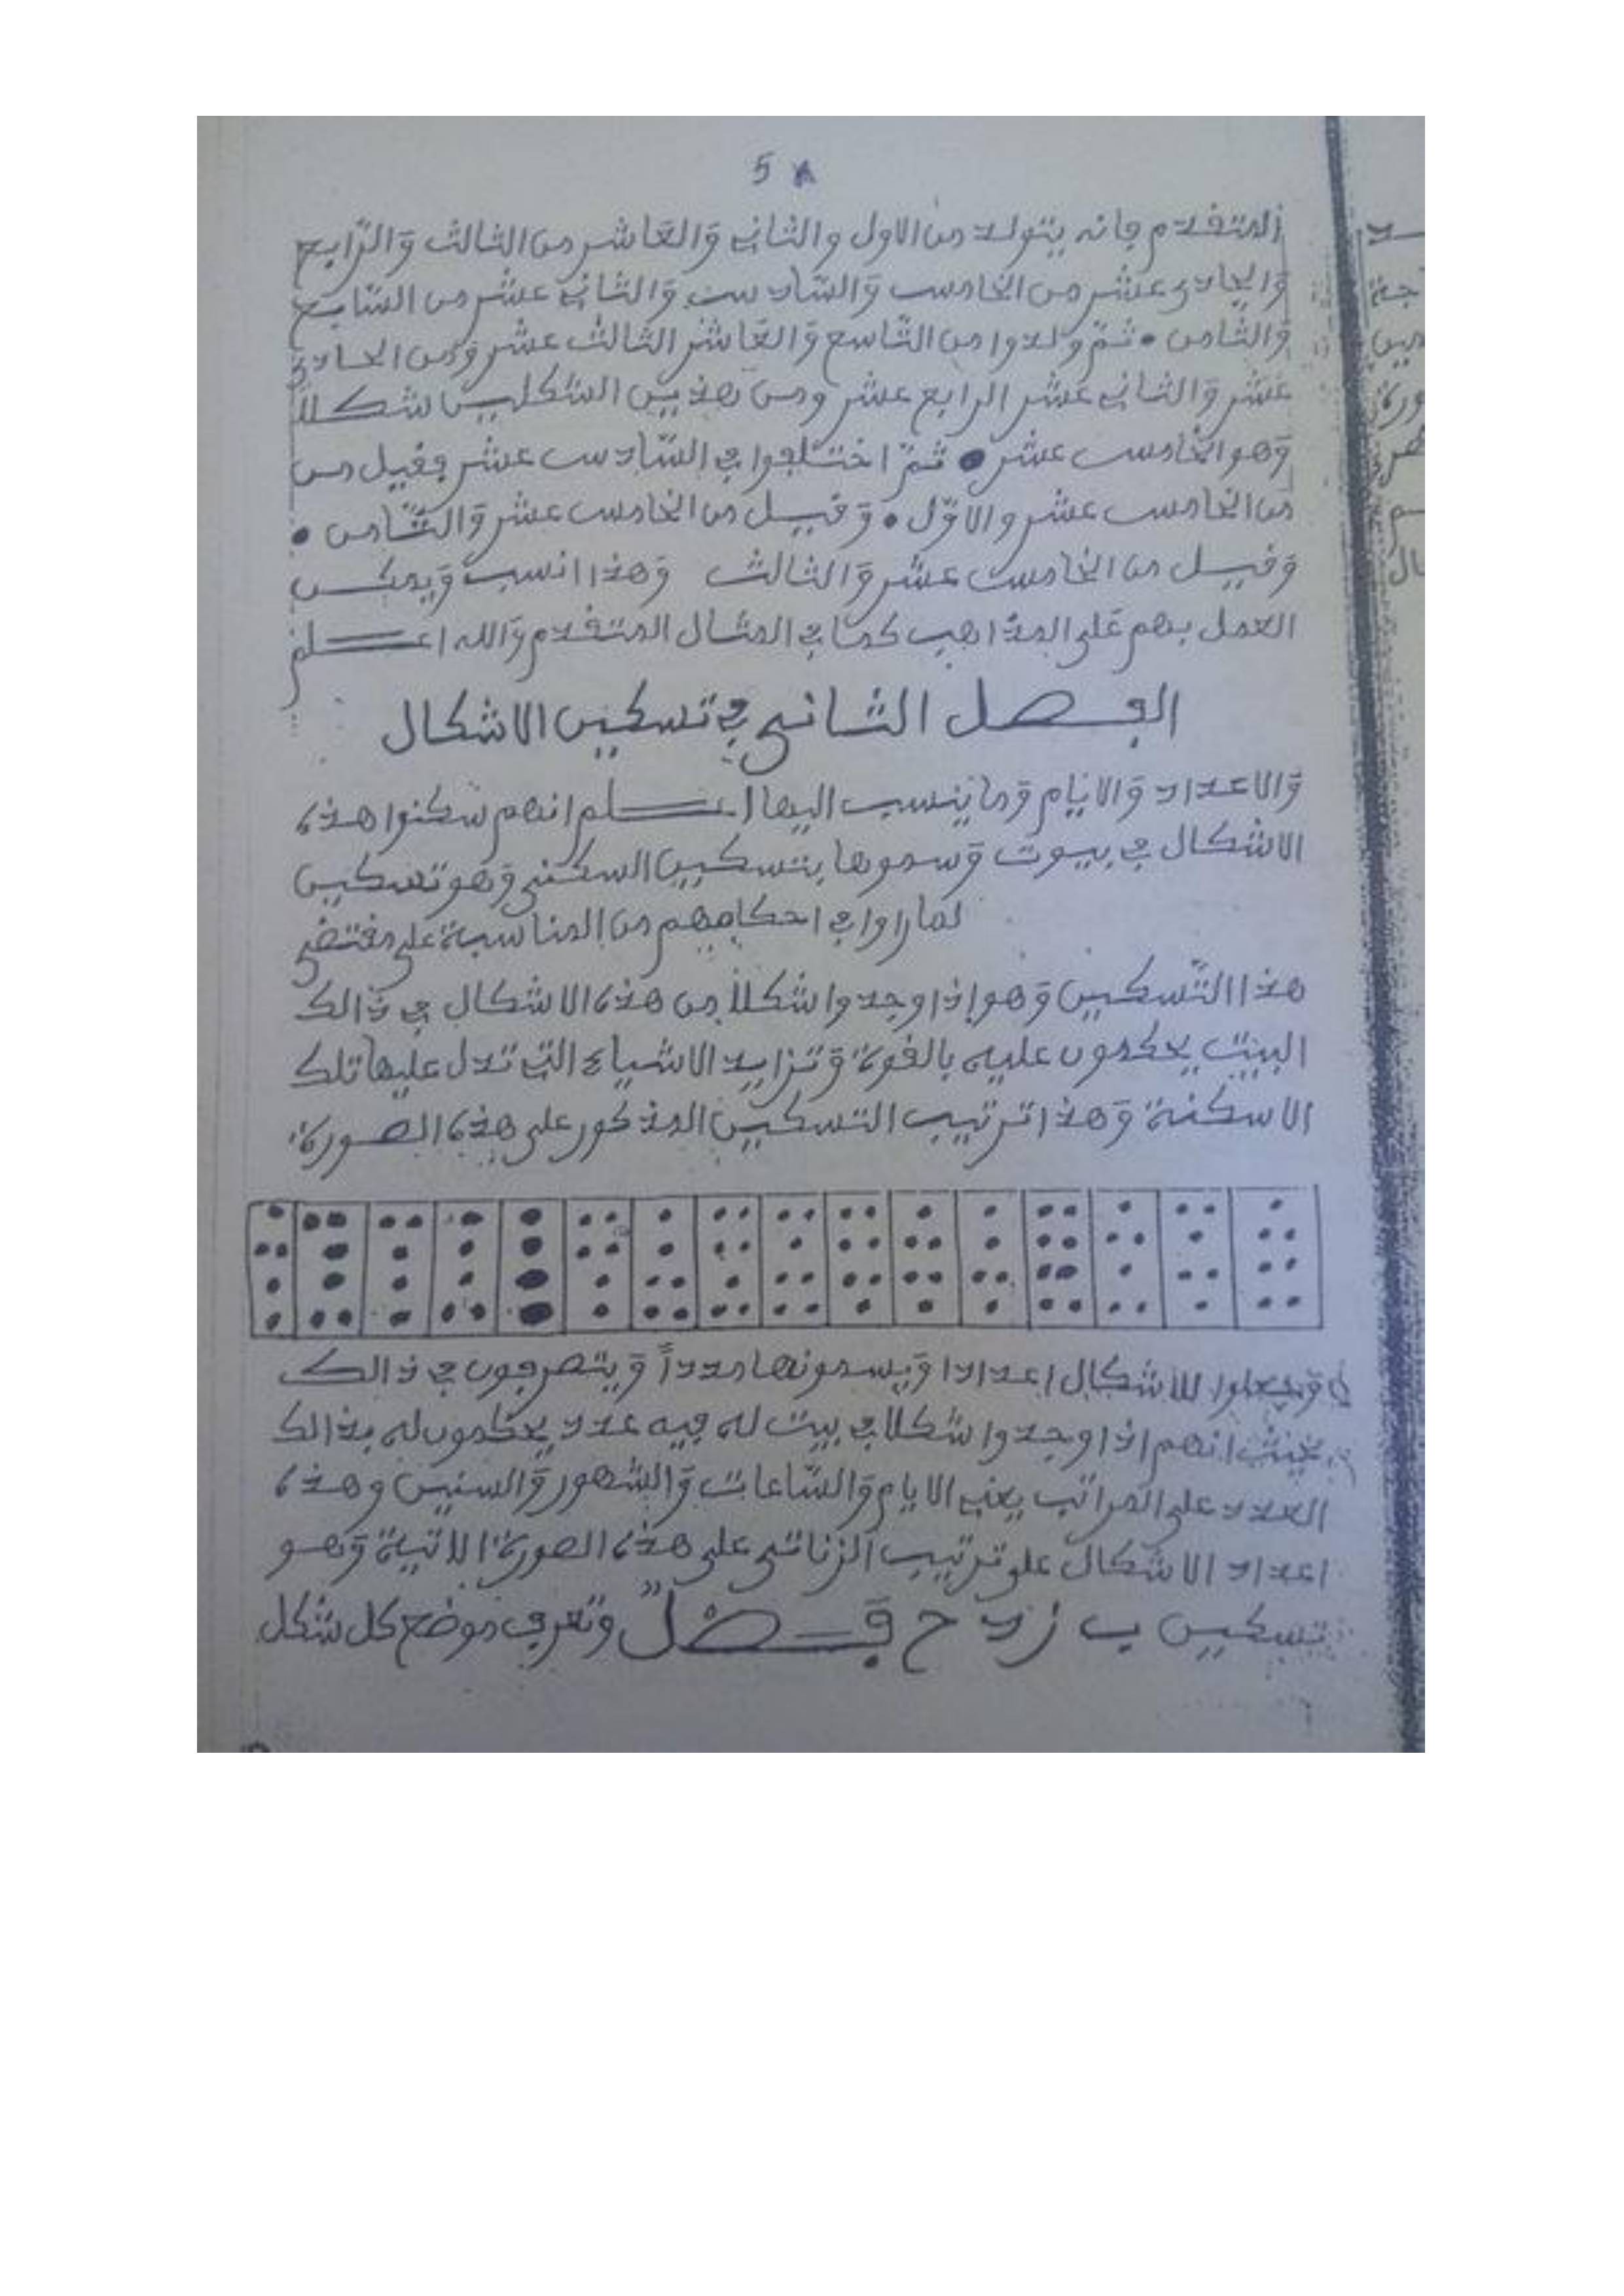 5
المتقدم فانه يتولد من الاول والثاني وَالعَاشر من الثالث وَالرَّابع
وَالحادي عشر من الخامس وَالسَّادس وَالثاني عشر من السَّابع
وَالثامن • ثمّ ولدوا من التَّاسع وَالعَاشر الثالث عشر وَمن الحادي
عشر وَالثاني عَشر الرابع عشر ومن هذين الشكلين شكلاً
وَهو الخامس عشر • ثمّ اختلفوا في السَّادس عشر فقيل من
من الخامس عشر والاوّل • وَقيل من الخامس عشر وَالثَّامن •
وَقيل من الخامس عشر وَالثالث وَهذا انسب وَيمكن
العمل بهم عَلى المذاهب كما في المثال المتقدم وَالله اعلم
الفصل الثاني في تسكين الاشكال
وَالاعداد وَالايام وَما ينسب اليها اعلم انهم سكنوا هذه
الاشكال في بيوت وَسموها بتسكين السكنى وَهو تسكين
لما راوا في احكامهم من المناسبة على مقتضى
هذا التّسكين وَهو إذا وجدوا شكلاً من هذه الاشكال في ذالك
البيت يحكمون عليه بالقوة وَتزايد الاشياء التي تدل عليها تلك
الاسكنة وَهذا ترتيب التسكين المذكور على هذه الصورة
للاشكال اعدادا وَيسمونها مدداً وَيتصرفون في ذالك
بحيث انهم إذا وجدوا شكلا في بيت له فيه عدد يحكمون له بذالك
العدد على المراتب يعني الايام وَالسَّاعات وَالشهور وَالسنين وهذه
اعداد الاشكال على ترتيب الزناتي على هذه الصورة الاتية وَهو
تسكين ب ز د ح فَصْلٌ وتعرف موضع كل شكل